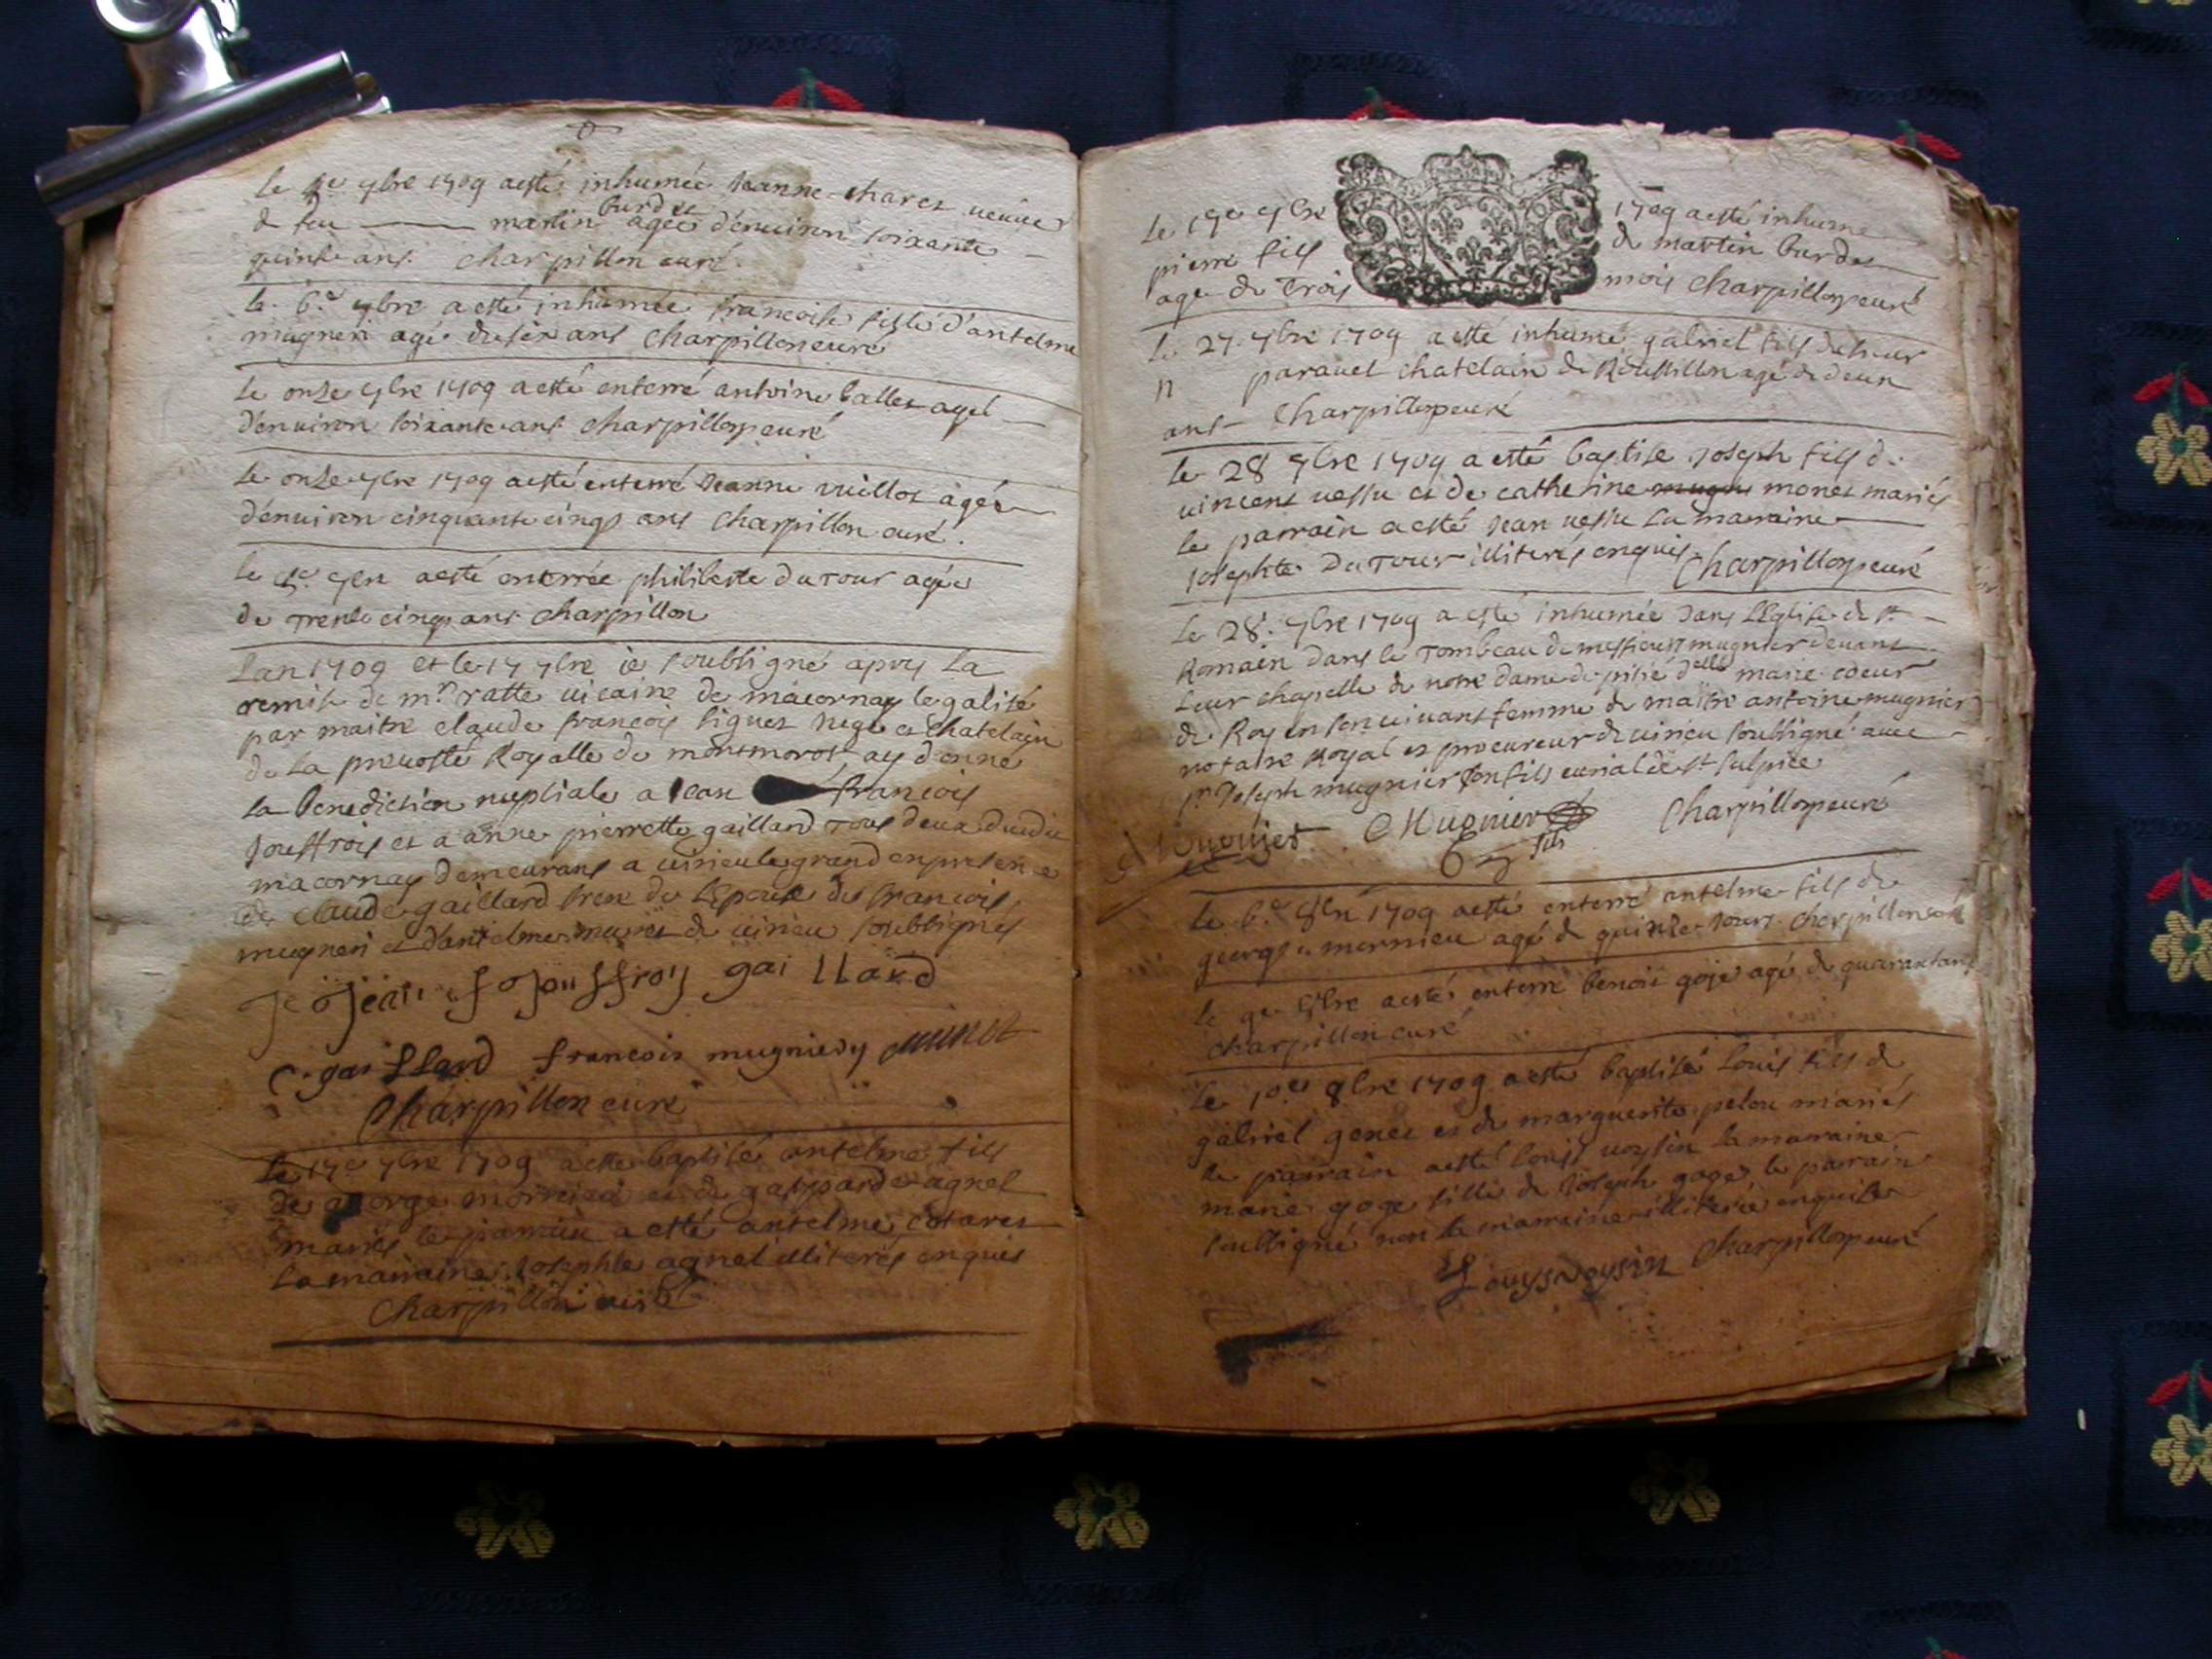 Le 4e 7bre 1709 a esté inhumée Jeanne charet veuve
de feu martin burdet agée d'environ soixante
quinze ans. Charpillon curé
le 6e 7bre a esté inhumée francoise fille d'antelme
mugneri agée de six ans Charpillon curé
Le onze 7bre 1709 a esté enterré antoine ballet agé
d'environ soixante ans Charpillon curé
Le onze 7bre 1709 a esté enterré Jeanne vuillot agée
d'environ cinquante cinq ans Charpillon curé.
le 7bre a esté enterrée philiberte Dutour agée
de Trente cinq ans Charpillon
Lan 1709 et le 17 7bre ie soubsigné apres La
remise de mr ratte vicaire de macornay legalisé
par maitre claude francois Juge et Chatelain
de La prevosté Royalle de montmorot ay donné
la Benediction nuptiale a Jean francois
Jouffroy et a anne pierrette gaillard Tous deux dudit
macornay demeurans a virieu le grand en presence
de Claude gaillard frere de L'epouse de francois
mugneri et d'antelme de virieu soubsignés
Je Jean f Jouffroy gaillard
C. gaillard francois mugniery
Charpillon curé
Le 17e 7bre 1709 a esté baptisé antelme fils
de george mornieu et de gasparde agnel
mariés le parrain a esté antelme
La marraine Josephte agnel illiterés enquis
Charpillon curé
Le 19e 7bre 1709 a esté inhumé
pierre fils de martin burdet
agé de Trois mois Charpillon curé
Le 27. 7bre 1709 a esté inhumé gabriel fils de sieur
n paravel chatelain de Rousillon agé de deux
ans Charpillon curé
le 28 7bre 1709 a esté baptisé Joseph fils de
vincent vessu et de catherine monet mariés
le parrain a esté Jean vessu La marraine
Josephte Dutour illiterés enquis. Charpillon curé
Le 28. 7bre 1709 a esté inhumée Dans L'Eglise de St
Romain dans le Tombeau de messieurs mugnier devant
Leur chapelle de notre dame de pitié delle marie coeur
de Roy en son vivant femme de maitre antoine mugnier
notaire Royal et procureur de virieu soubsigné avec
sr Joseph mugnier son fils curial de St Sulpice
Mugnier Mugnier fils Charpillon curé
le 6e 8bre 1709 a esté enterré antelme fils de
george mornieu agé de quinze Jours Charpillon curé
le 9e 8bre a esté enterré benoit goje agé de quarante ans
Charpillon curé
Le 10e 8bre 1709 a esté baptisé Louis fils de
gabriel genet et de marguerite pelou mariés
le parrain a esté Louis voysin La marraine
marie goge fille de Joseph goge le parrain
soubsigné non la marraine illiterée enquise
Louys voysin Charpillon curé